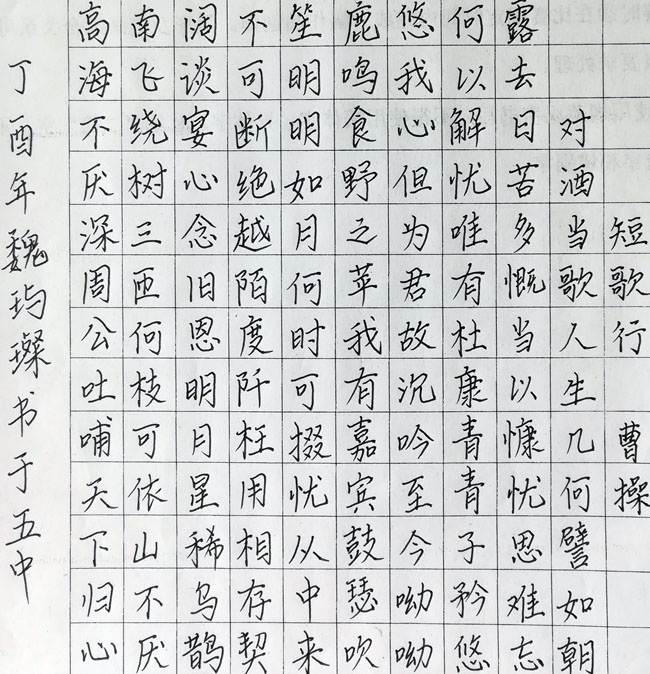 短歌行 曹操
对酒当歌人生几何譬如朝
露去日苦多慨当以慷忧思难忘
何以解忧唯有杜康青青子矜悠
悠我心但为君故沉吟至今呦呦
鹿鸣食野之苹我有嘉宾鼓瑟吹
笙明明如月何时可掇忧从中来
不可断绝越陌度阡枉用相存契
阔谈宴心念旧恩明月星稀乌鹊
南飞绕树三匝何枝可依山不厌
高海不厌深周公吐哺天下归心
丁酉年魏玙璨书于五中